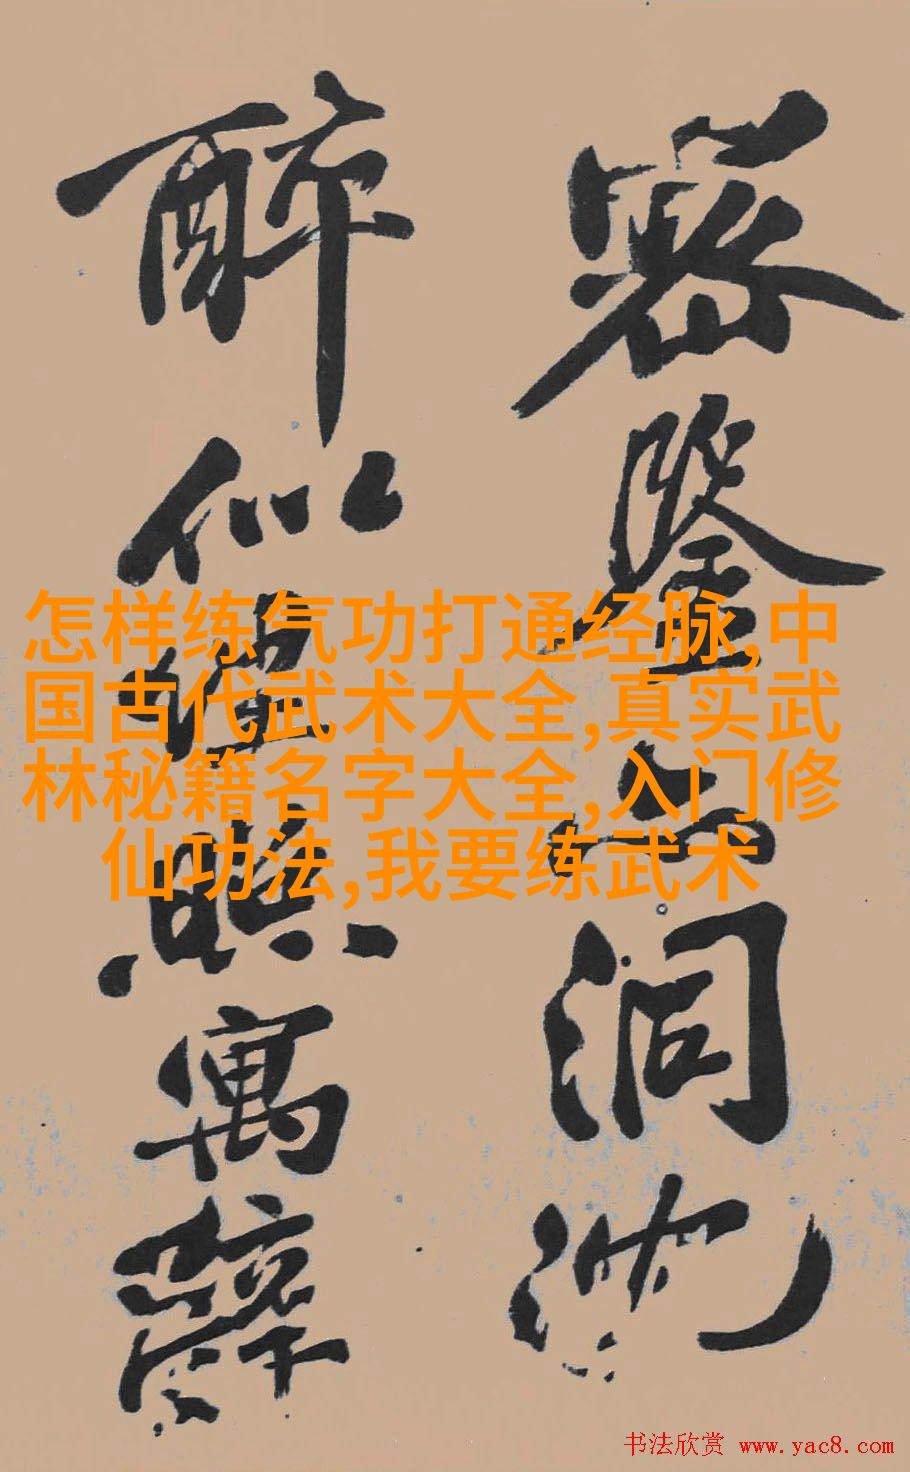 密鉴
洞沈
醉似
照寓辞
怎样练气功打通经脉,中
国古代武术大全,真实武
林秘籍名字大全,入门修
仙功法,我要练武术
书法欣赏 www.yac8.com